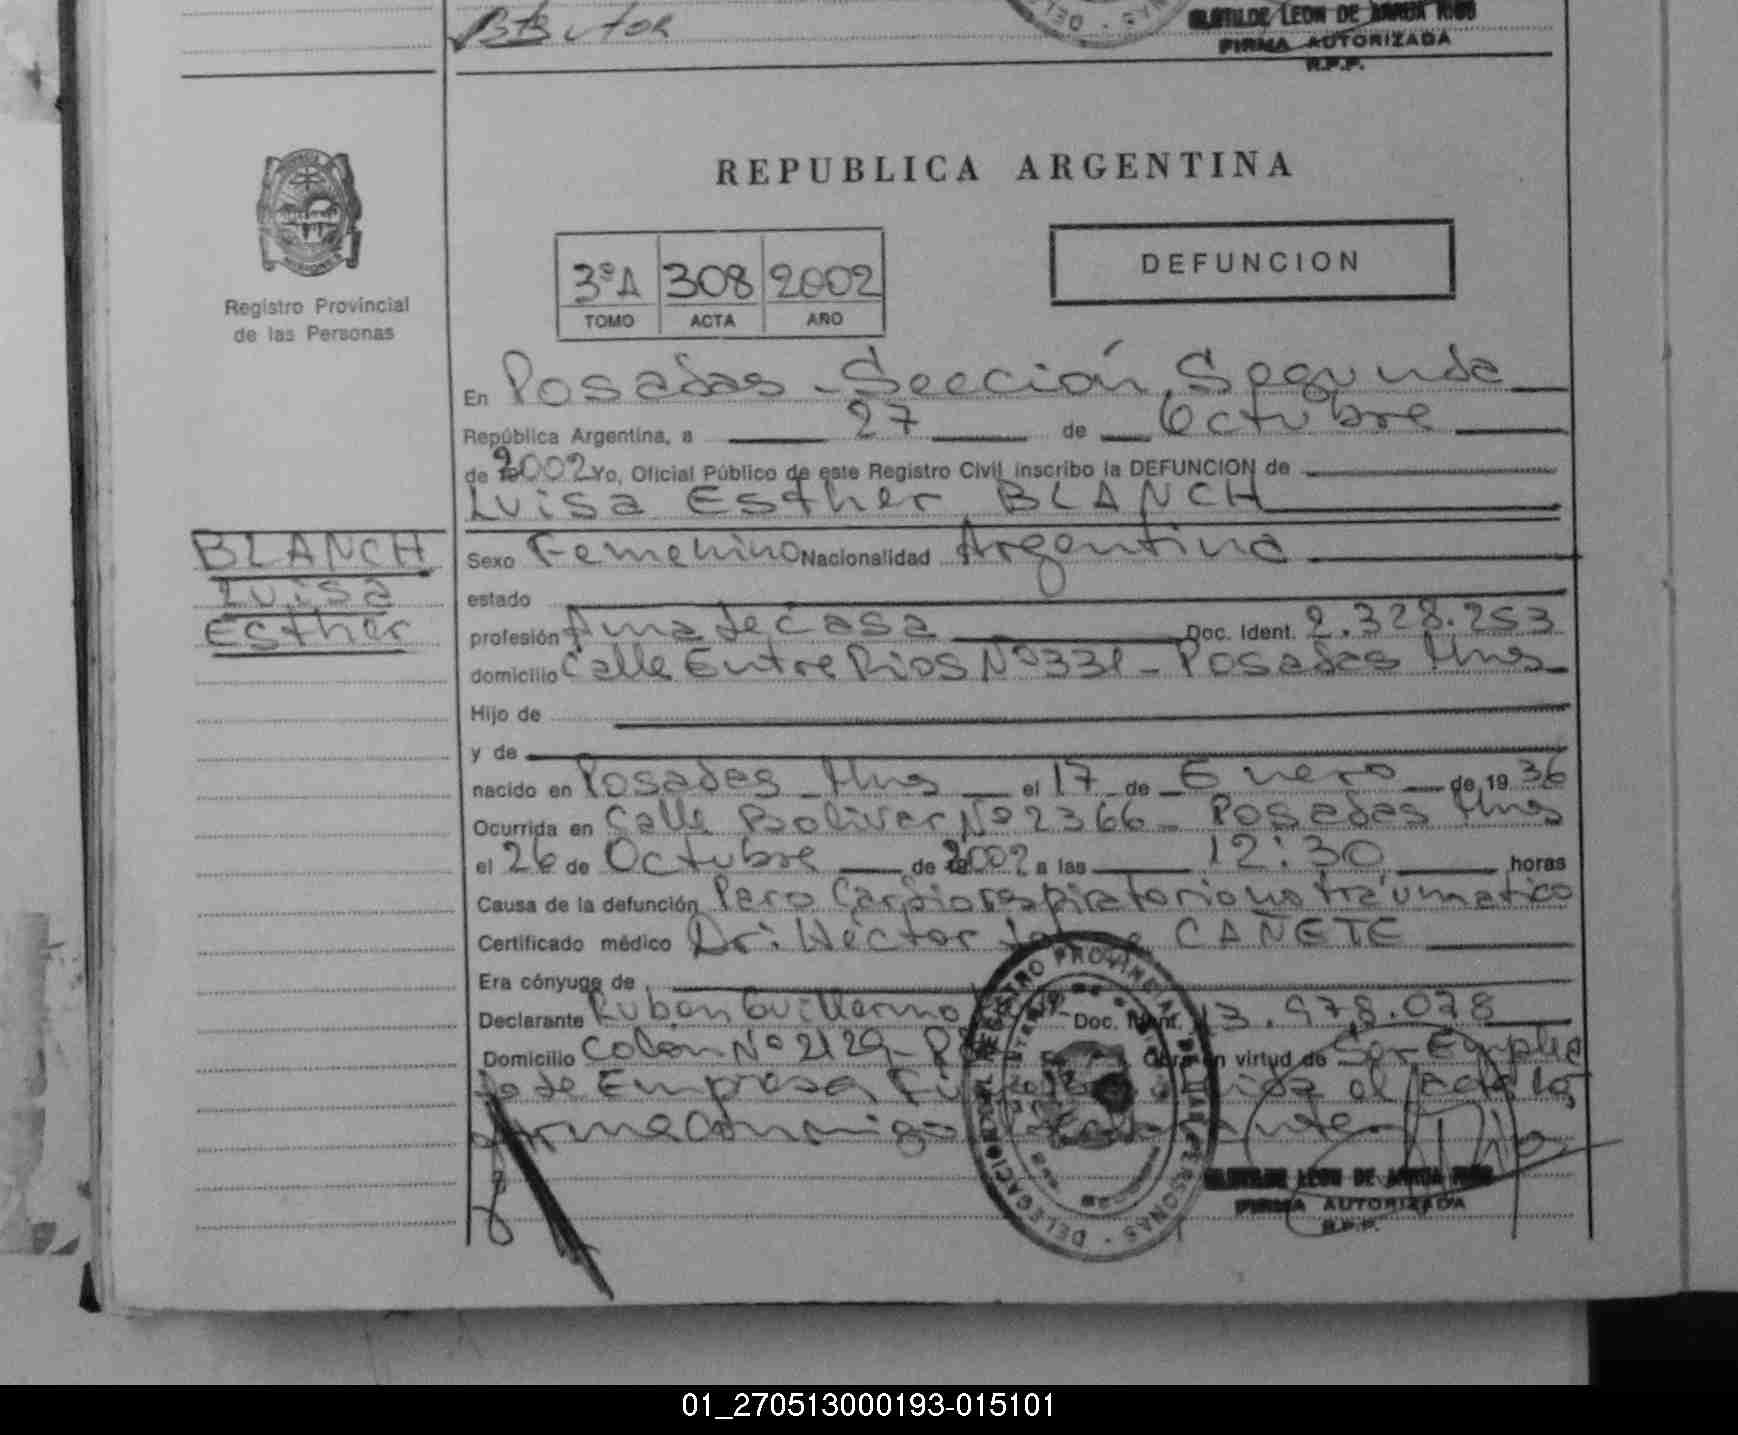 CLOTILDE LEON DE
FIRMA AUTORIZADA
R.P.P.
REPUBLICA ARGENTINA
DEFUNCION
3ºA 308 2002
TOMO ACTA AÑO
Registro Provincial
de las Personas
En Posadas - Sección Segunda
República Argentina, a 27 de Octubre
de 2002 Yo, Oficial Público de este Registro Civil inscribo la DEFUNCION de
Luisa Esther BLANCH
BLANCH
Luisa
Esther
Sexo Femenino Nacionalidad Argentina
estado
profesión Ama de casa Doc. Ident. 2.328.253
domicilio Calle Entre Rios Nº 331 - Posadas Mns
Hijo de
y de
nacido en Posadas Mns el 17 de Enero de 1936
Ocurrida en Calle Bolivar Nº 2366 - Posadas Mns
el 26 de Octubre de 2002 a las 12:30 horas
Causa de la defunción Paro Cardiorespiratorio no traumatico
Certificado médico Dr: Héctor CAÑETE
Era cónyuge de
Declarante Ruben Guillermo Doc. Ident. 13.978.078
Domicilio Colón Nº 2129 - Obra en virtud de Ser Emplea
do de Empresa el acta la
firma conmigo
REGISTRO PROVINCIAL DE LAS PERSONAS - DELEGACION
LEON DE
FIRMA AUTORIZADA
R.P.P.
01_270513000193-015101